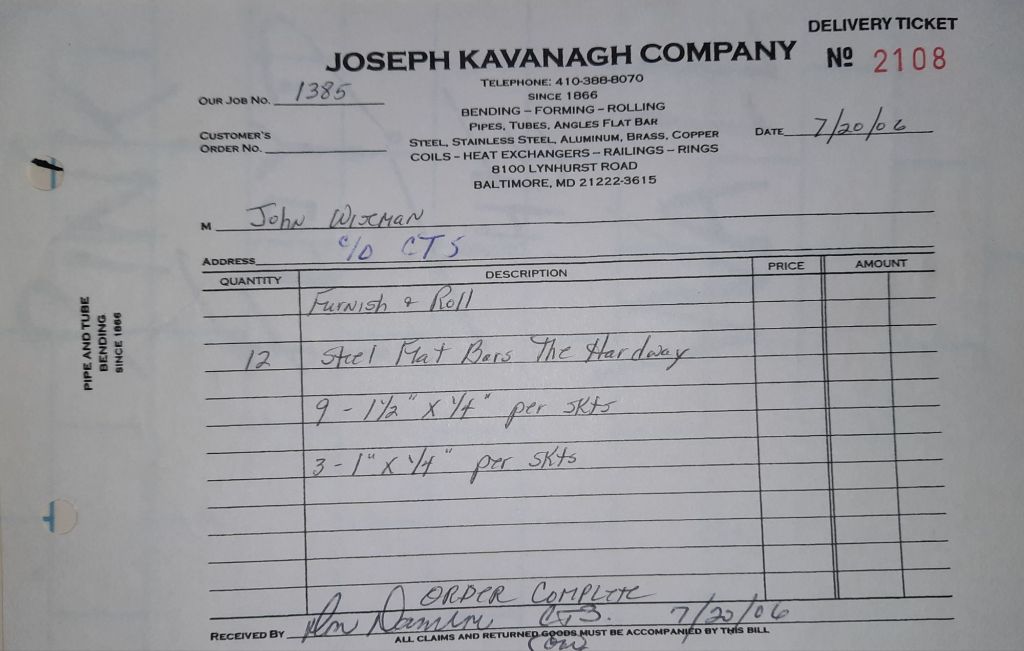 DELIVERY TICKET
JOSEPH KAVANAGH COMPANY
Nº 2108
TELEPHONE: 410-388-8070
SINCE 1866
OUR JOB NO. 1385
BENDING – FORMING – ROLLING
PIPES, TUBES, ANGLES FLAT BAR
CUSTOMER'S
ORDER NO.
STEEL, STAINLESS STEEL, ALUMINUM, BRASS, COPPER
DATE 7/20/06
COILS – HEAT EXCHANGERS – RAILINGS – RINGS
8100 LYNHURST ROAD
BALTIMORE, MD 21222-3615
M John Wixman
ADDRESS c/o CTS
QUANTITY DESCRIPTION PRICE AMOUNT
Furnish & Roll
12 Steel Flat Bars The Hardway
9 - 1 1/2" X 1/4" per skts
3 - 1" X 1/4" per skts
ORDER COMPLETE
RECEIVED BY CTS. 7/20/06
ALL CLAIMS AND RETURNED GOODS MUST BE ACCOMPANIED BY THIS BILL
PIPE AND TUBE
BENDING
SINCE 1866